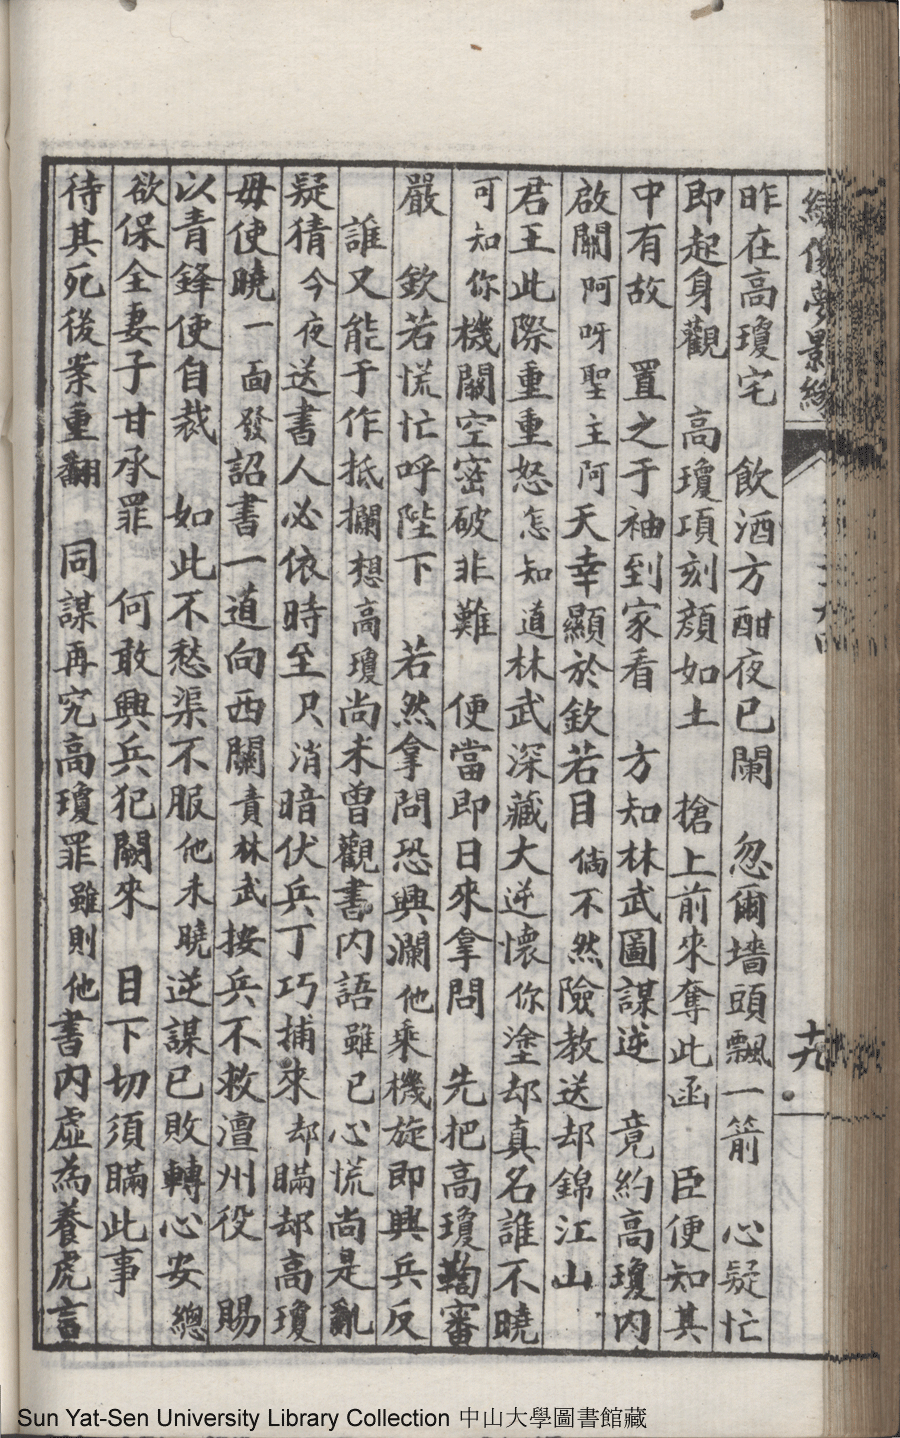 繡像夢影緣
十九
昨在高瓊宅　飲酒方酣夜已闌　忽爾墻頭飄一箭　心疑忙
即起身觀　高瓊項刻顔如土　搶上前來奪此函　臣便知其
中有故　置之于袖到家看　方知林武圖謀逆　竟約高瓊内
啟關阿呀聖主阿天幸顯於欽若目倘不然險教送却錦江山
君王此際重重怒怎知道林武深藏大逆懷你塗却真名誰不曉
可知你機關空密破非難　便當即日來拿問　先把高瓊鞫審
嚴　欽若慌忙呼陛下　若然拿問恐興瀾他乘機旋即興兵反
誰又能于作抵攔想高瓊尚未曾觀書内語雖已心慌尚是亂
疑猜今夜送書人必依時至只消暗伏兵丁巧捕來却瞞却高瓊
毋使曉一面發詔書一道向西關責林武按兵不救澶州役　賜
以青鋒使自裁　如此不愁渠不服他未曉逆謀已敗轉心安總
欲保全妻子甘承罪　何敢興兵犯闕來　目下切須瞞此事
待其死後案重翻　同謀再究高瓊罪雖則他書内虛為養虎言
Sun Yat-Sen University Library Collection 中山大學圖書館藏